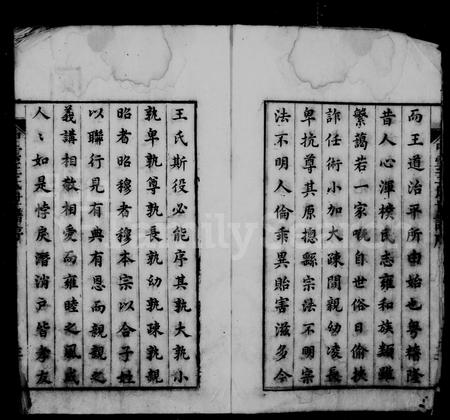 而王道治平所由始也粤稽隆
昔人心渾樸民志雍和族類雖
繁藹若一家慨自世俗日偷挾
詐任術小加大疎間親幼凌長
卑抗尊其原摠縣宗法不明宗
法不明人倫乖異貽害滋多今
王氏斯役必能序其孰大孰小
孰卑孰尊孰長孰幼孰疎孰親
昭者昭穆者穆本宗以合子姓
以聯行見有典有恩而親親之
義講相敬相愛而雍睦之風成
人人如是悖戾潛消戸皆孝友
FamilySearch